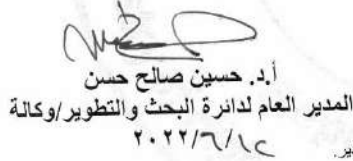 أ.د. حسين صالح حسن
المدير العام لدائرة البحث والتطوير/وكالة
٢٠٢٢/٦/١٢